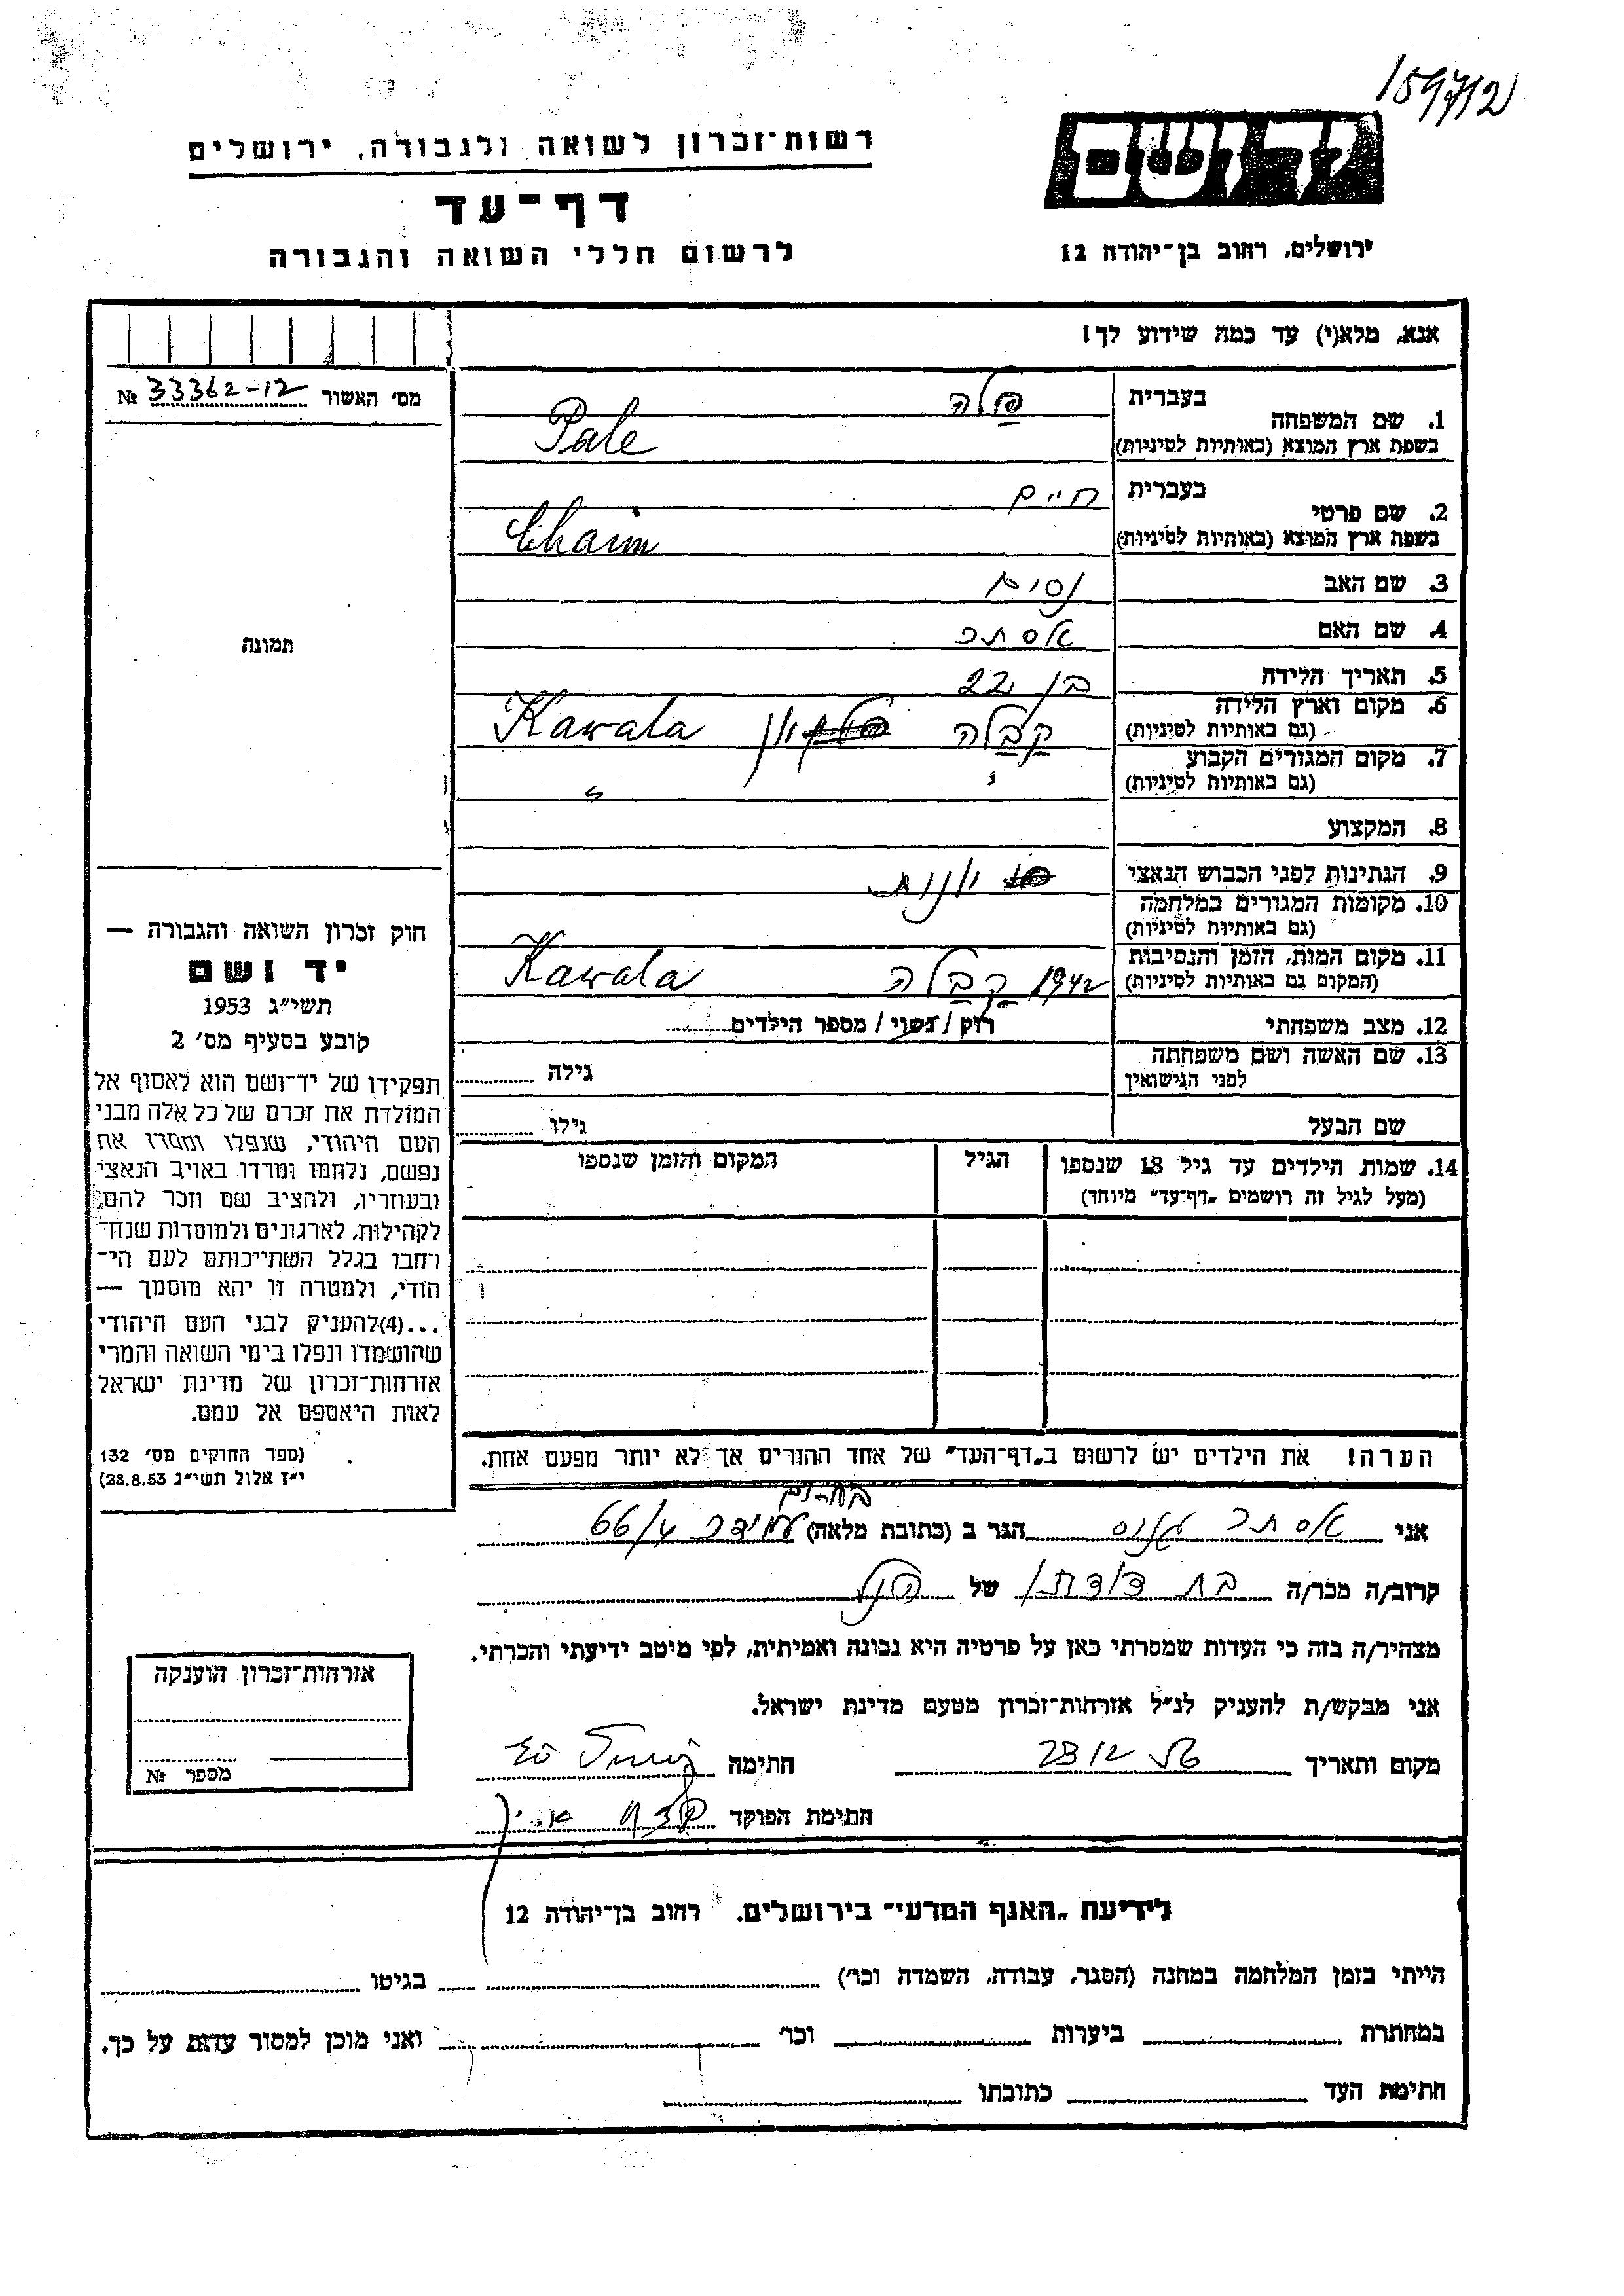 159712
רשות־זכרון לשואה ולגבורה, ירושלים
יד ושם
דף־עד
לרשום חללי השואה והגבורה
ירושלים, רחוב בן־יהודה 12
אנא, מלא(י) עד כמה שידוע לך!
מס׳ האשור 33362-12 №
1. שם המשפחה
בעברית פלה
בשפת ארץ המוצא (באותיות לטיניות) Pale
2. שם פרטי
בעברית חיים
בשפת ארץ המוצא (באותיות לטיניות) Chaim
3. שם האב נסים
4. שם האם אסתר
5. תאריך הלידה בן 22
6. מקום וארץ הלידה
(גם באותיות לטיניות) קבלה יון Kawala
7. מקום המגורים הקבוע
(גם באותיות לטיניות) " "
8. המקצוע
9. הנתינות לפני הכבוש הנאצי יונית
10. מקומות המגורים במלחמה
(גם באותיות לטיניות)
11. מקום המות, הזמן והנסיבות
(המקום גם באותיות לטיניות) 1942 קבלה Kawala
12. מצב משפחתי רוק / נשוי / מספר הילדים
13. שם האשה ושם משפחתה
לפני הנישואין גילה
שם הבעל גילו
14. שמות הילדים עד גיל 18 שנספו
(מעל לגיל זה רושמים „דף־עד” מיוחד)
הגיל
המקום והזמן שנספו
הערה! את הילדים יש לרשום ב„דף־העד” של אחד ההורים אך לא יותר מפעם אחת.
תמונה
חוק זכרון השואה והגבורה —
יד ושם
תשי״ג 1953
קובע בסעיף מס׳ 2
תפקידו של יד־ושם הוא לאסוף אל
המולדת את זכרם של כל אלה מבני
העם היהודי, שנפלו ומסרו את
נפשם, נלחמו ומרדו באויב הנאצי
ובעוזריו, ולהציב שם וזכר להם,
לקהילות, לארגונים ולמוסדות שנח־
רחבו בגלל השתייכותם לעם הי־
הודי, ולמטרה זו יהא מוסמך —
...(4)להעניק לבני העם היהודי
שהושמדו ונפלו בימי השואה והמרי
אזרחות־זכרון של מדינת ישראל
לאות היאספם אל עמם.
(ספר החוקים מס׳ 132
י״ז אלול תשי״ג 28.8.53)
אני אסתר הגר ב (כתובת מלאה) עמידר 66/4
קרוב/ה מכר/ה בת דודתו של הנ״ל
מצהיר/ה בזה כי העדות שמסרתי כאן על פרטיה היא נכונה ואמיתית, לפי מיטב ידיעתי והכרתי.
אני מבקש/ת להעניק לנ״ל אזרחות־זכרון מטעם מדינת ישראל.
מקום ותאריך 23/12 חתימה
חתימת הפוקד
אזרחות־זכרון הוענקה
מספר №
לידיעת „האגף המדעי” בירושלים, רחוב בן־יהודה 12
הייתי בזמן המלחמה במחנה (הסגר, עבודה, השמדה וכו׳) בגיטו
במחתרת ביערות וכו׳ ואני מוכן למסור עדות על כך.
חתימת העד כתובתו